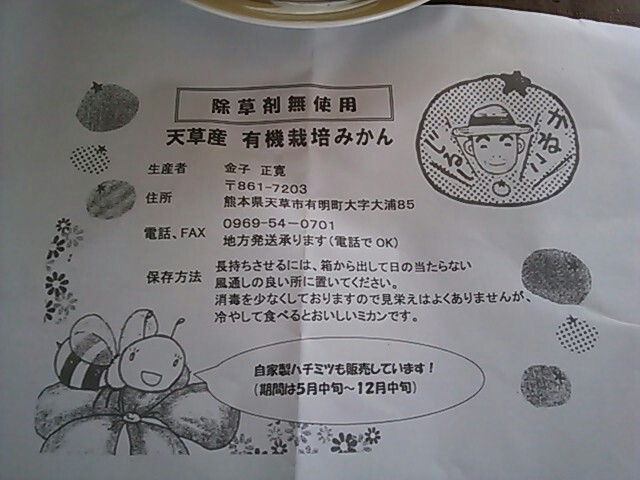 除草剤無使用
天草産 有機栽培みかん
生産者 金子 正寛
住所 〒861-7203
熊本県天草市有明町大字大浦85
電話、FAX 0969-54-0701
地方発送承ります(電話でOK)
保存方法 長持ちさせるには、箱から出して日の当たらない
風通しの良い所に置いてください。
消毒を少なくしておりますので見栄えはよくありませんが、
冷やして食べるとおいしいミカンです。
自家製ハチミツも販売しています!
(期間は5月中旬~12月中旬)